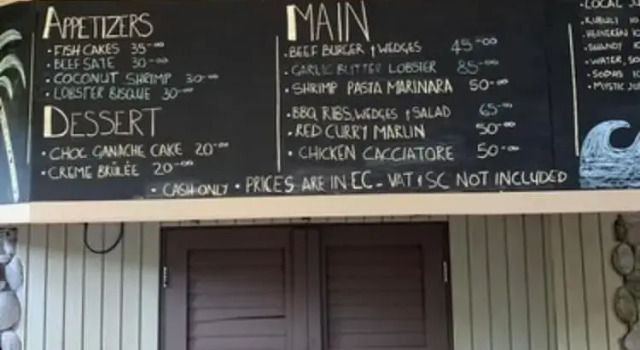 APPETIZERS
• FISH CAKES 35-00
• BEEF SATE 30-00
• COCONUT SHRIMP 30-00
• LOBSTER BISQUE 30-00
DESSERT
• CHOC GANACHE CAKE 20-00
• CREME BRÛLÉE 20-00
MAIN
• BEEF BURGER & WEDGES 45-00
• GARLIC BUTTER LOBSTER 85-00
• SHRIMP PASTA MARINARA 50-00
• BBQ RIBS, WEDGES & SALAD 65-00
• RED CURRY MARLIN 50-00
• CHICKEN CACCIATORE 50-00
• CASH ONLY • PRICES ARE IN EC - VAT & SC NOT INCLUDED
• LOCAL
• HEINEKEN
• SHANDY
• WATER,
• SODAS
• MYSTIC